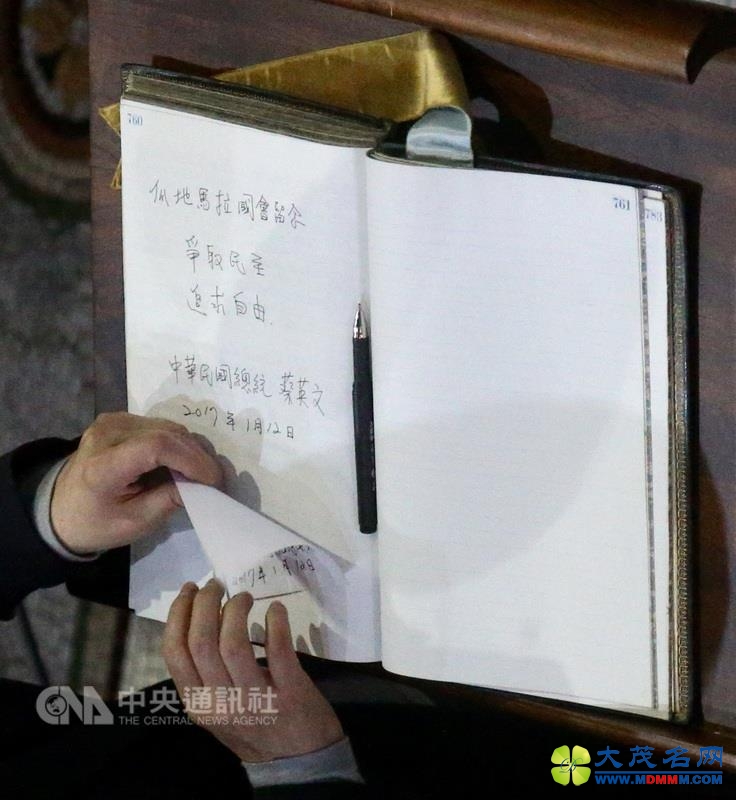 760
瓜地馬拉國會留念
爭取民主
追求自由.
中華民國總統 蔡英文
2017年1月12日
2017年1月12日
761
783
CNA 中央通訊社
THE CENTRAL NEWS AGENCY
大茂名网
WWW.MDMMM.COM